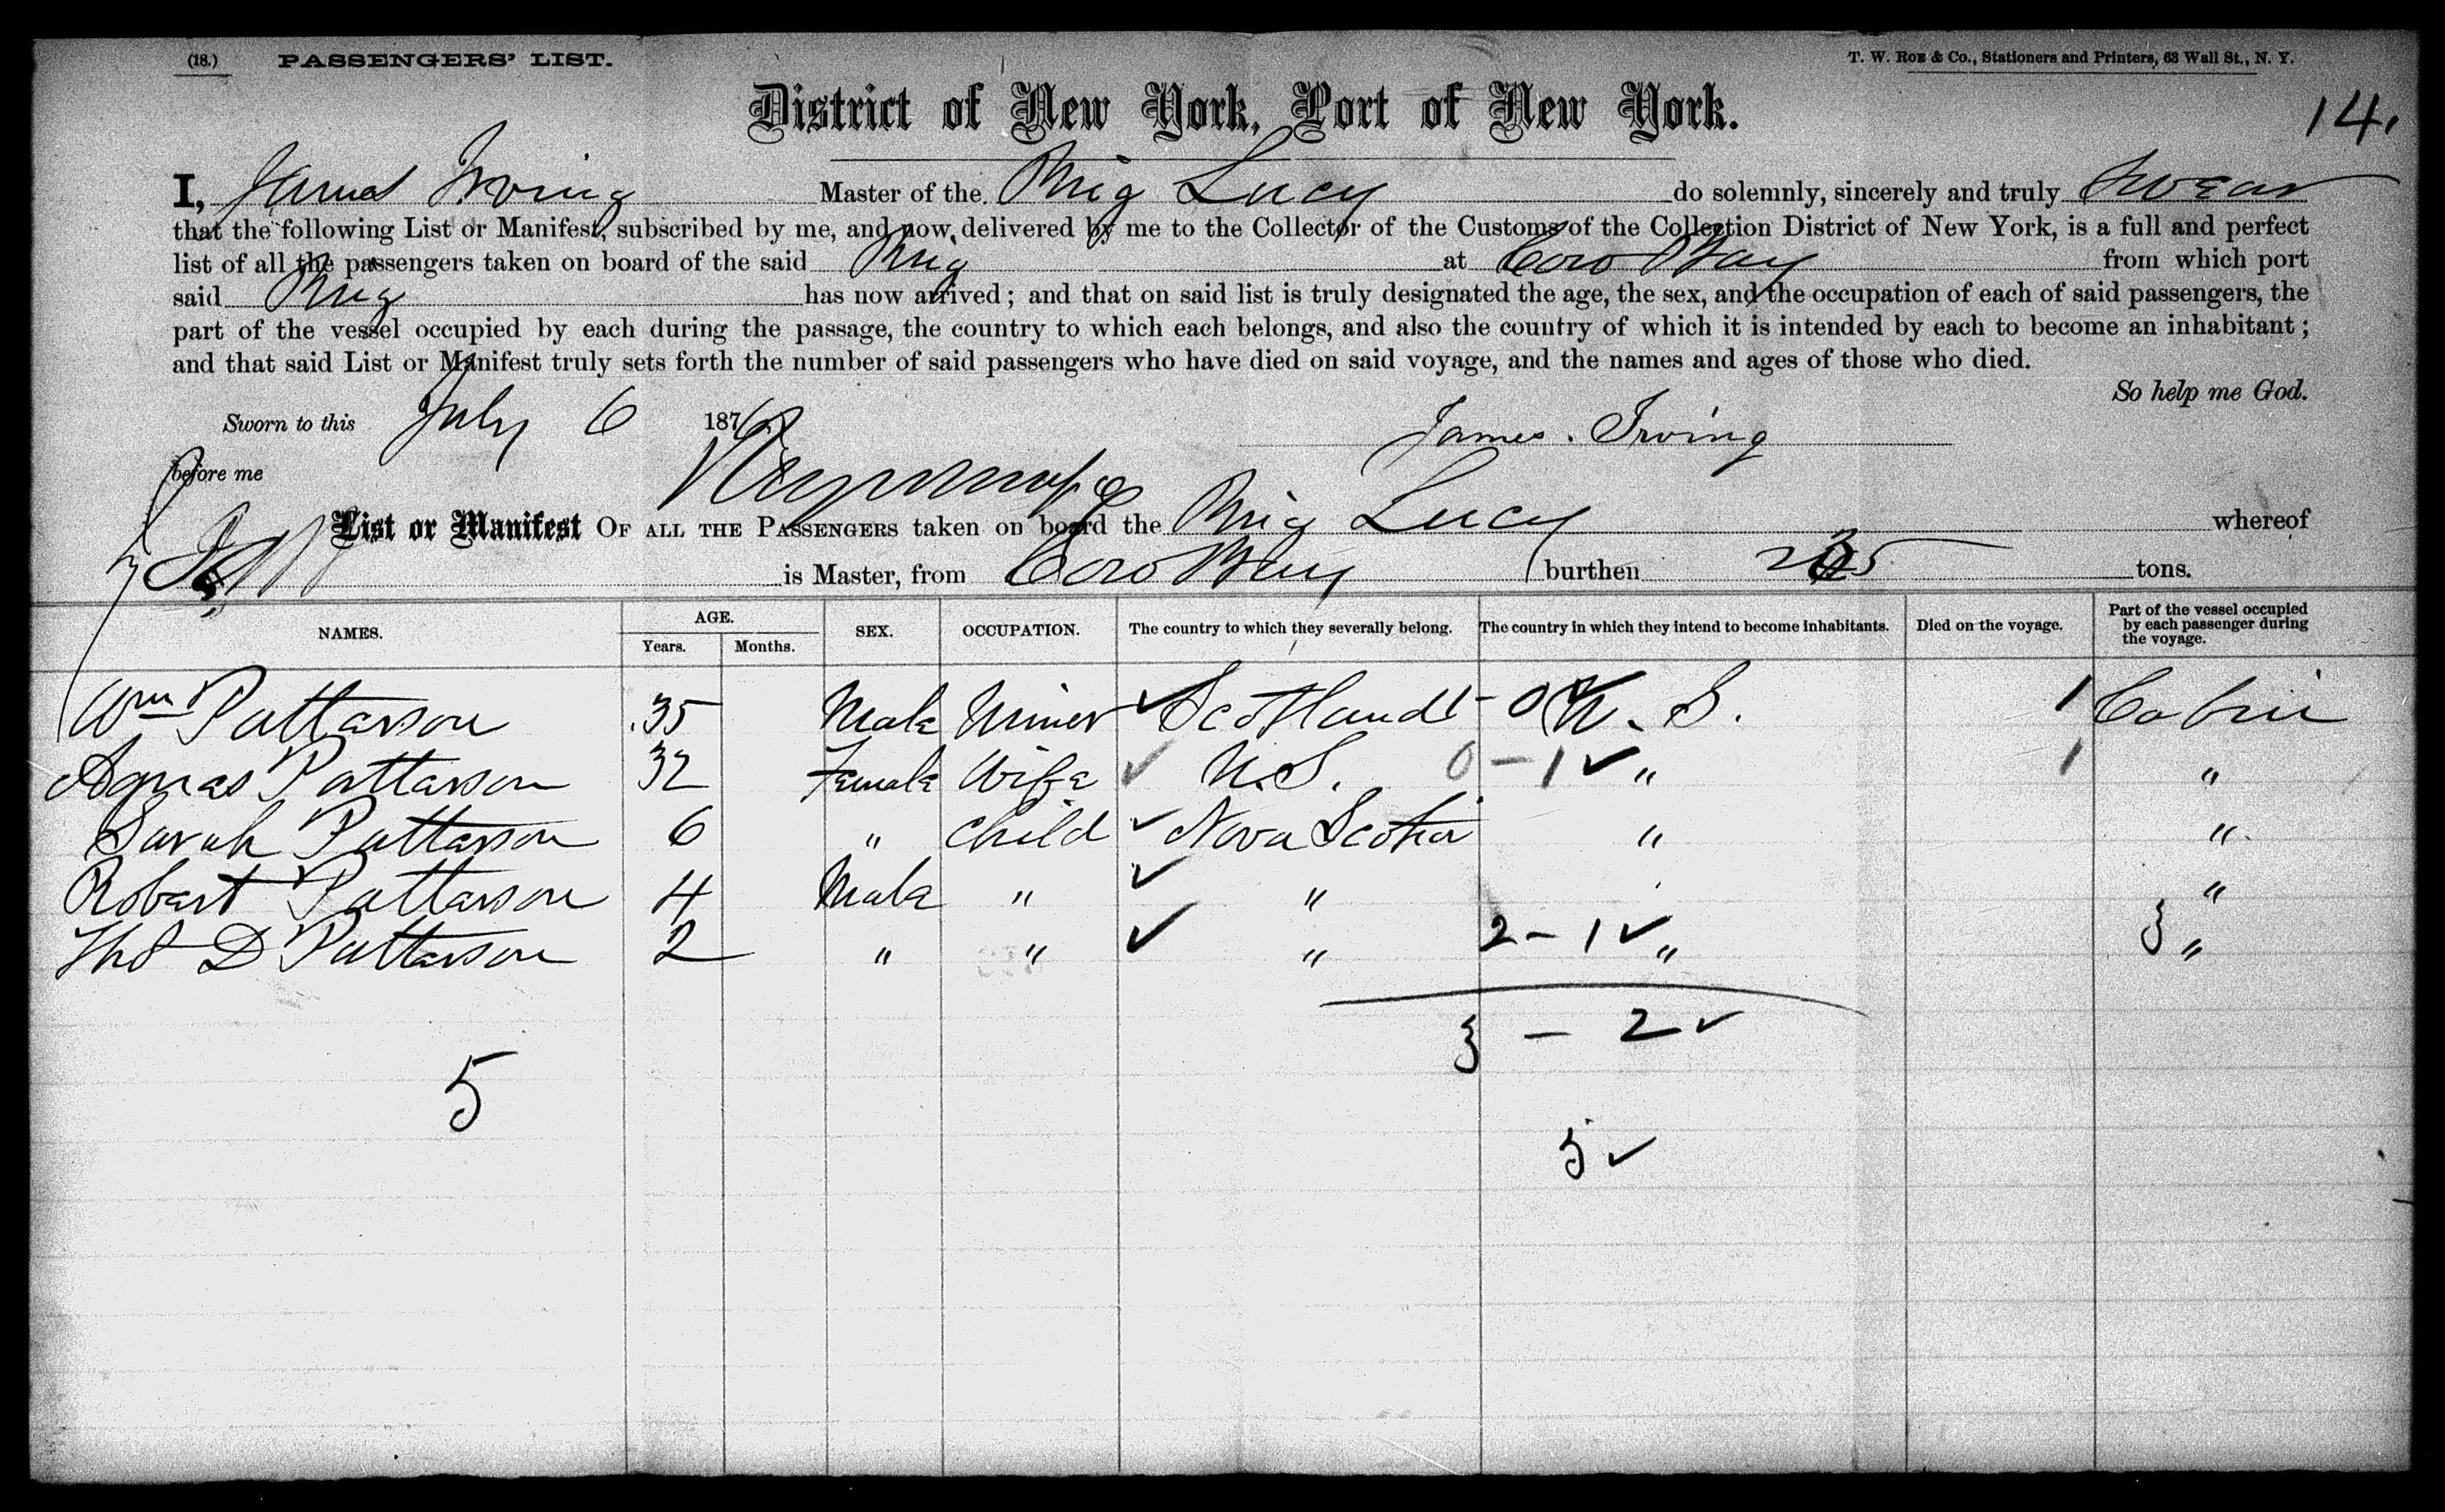 (18.) PASSENGERS' LIST. T. W. Roe & Co., Stationers and Printers, 63 Wall St., N. Y.
District of New York, Port of New York. 14.
I, James Irving Master of the Brig Lucy do solemnly, sincerely and truly Swear
that the following List or Manifest, subscribed by me, and now delivered by me to the Collector of the Customs of the Collection District of New York, is a full and perfect
list of all the passengers taken on board of the said Brig at Cow Bay from which port
said Brig has now arrived; and that on said list is truly designated the age, the sex, and the occupation of each of said passengers, the
part of the vessel occupied by each during the passage, the country to which each belongs, and also the country of which it is intended by each to become an inhabitant;
and that said List or Manifest truly sets forth the number of said passengers who have died on said voyage, and the names and ages of those who died.
So help me God.
Sworn to this July 6 1876 James. Irving
before me
List or Manifest OF ALL THE PASSENGERS taken on board the Brig Lucy whereof
is Master, from Cow Bay burthen tons.
NAMES. AGE. Years. Months. SEX. OCCUPATION. The country to which they severally belong. The country in which they intend to become inhabitants. Died on the voyage. Part of the vessel occupied by each passenger during the voyage.
Wm Pattarson 35 Male Miner ✓ Scotland 1 - 0 ✓ U. S. 1 Cabin
Agnes Pattarson 32 Female Wife ✓ U.S. 0 - 1 ✓ " 1 "
Sarah Pattarson 6 " Child ✓ Nova Scotia " "
Robert Pattarson 4 Male " ✓ " "
Thos D Pattarson 2 " " ✓ " 2 - 1 ✓ " 3 "
3 - 2 ✓
5
5 ✓